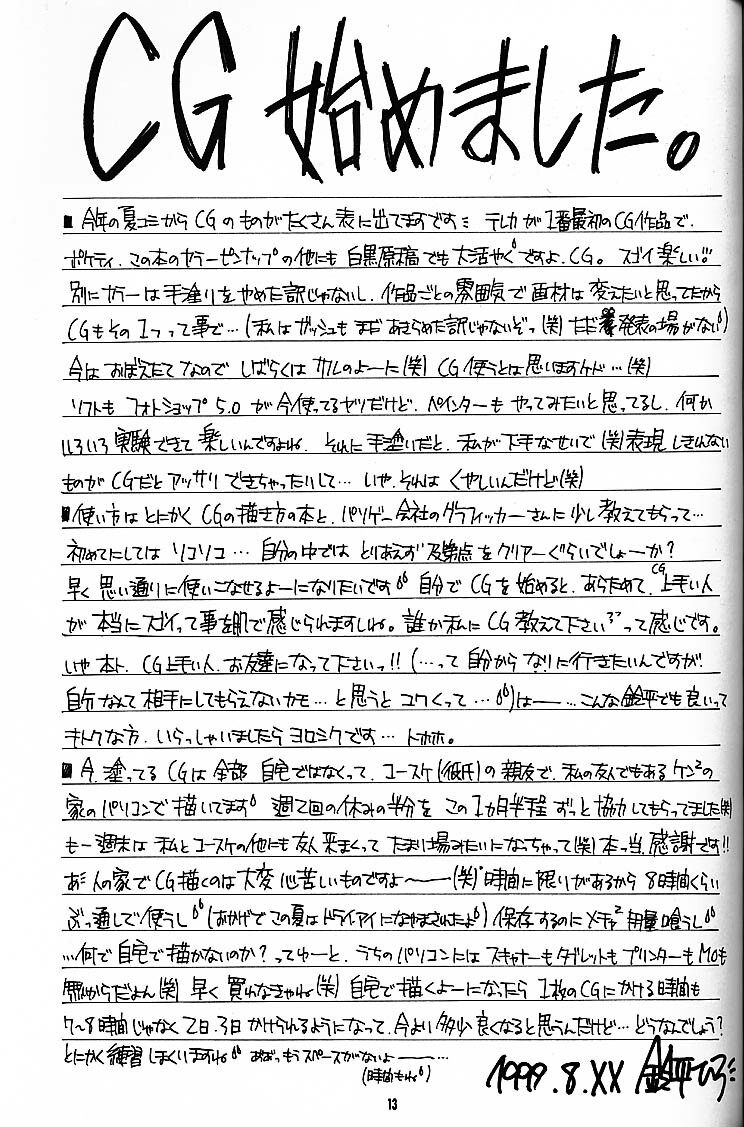 CG 始めました。
■今年の夏コミから CG のものがたくさん表に出てますですミ テレカが1番最初のCG作品で.
ポケティ.この本のカラーピンナップの他にも 白黒原稿でも大活やくですよ.CG。 スゴイ楽しい!!
別にカラーは手塗りをやめた訳じゃないし.作品ごとの雰囲気で画材は変えたいと思ってたから
CGもその1つって事で…(私はガッシュもまだあきらめた訳じゃないぞっ(笑)ただ発表の場がない)
今はおぼえたてなので しばらくは カレのよーに(笑)CG使うとは思いますケド…(笑)
ソフトも フォトショップ 5.0 が今使ってるヤツだけど.ペインターも やってみたいと思ってるし.何か
いろいろ実験できて楽しいんですよね. それに手塗りだと.私が下手なせいで(笑)表現しきれない
ものがCGだとアッサリできちゃったりして… いや.それは くやしいんだけど(笑)
■使い方はとにかく CGの描き方の本と.パソゲー会社のグラフィッカーさんに少し教えてもらって…
初めてにしては ソコソコ…自分の中では とりあえず 及第点をクリアーぐらいでしょーか?
早く思い通りに使いこなせるよーになりたいです 自分で CGを始めると.あらためて.CG上手い人
が 本当にスゴイって事を肌で感じられますしね。誰か私にCG教えて下さい って感じです。
いや 本ト. CG上手い人.お友達になって下さいっ!!(…って自分からなりに行きたいんですが.
自分なんて相手にしてもらえないカモ…と思うとコワくって…)は——…こんな鈴平でも良いって
キトクな方.いらっしゃいましたら ヨロシクです…トホホ。
■今.塗ってる CGは全部 自宅ではなくって.コースケ(彼氏)の親友で.私の友人でもあるケンの
家のパソコンで描いてます 週2回の休みの半分を この1カ月半程 ずっと協力してもらってました(笑)
もー週末は 私とコースケの他にも友人来まくって たまり場みたいになっちゃって(笑)本っ当.感謝です!!
あ、人の家でCG描くのは大変 心苦しいものですよ———(笑)時間に限りがあるから 8時間くらい
ぶっ通しで使うし(おかげでこの夏はドライアイになやまされたよ)保存するのにメチャ2用量喰うし
…何で自宅で描かないのか?ってゆーと.うちのパソコンにはスキャナーもタブレットもプリンターもMOも
無いからだよん(笑)早く買わなきゃね(笑)自宅で描くよーになったら 1枚のCGにかける時間も
7〜8時間じゃなく2日.3日かけられるようになって.今より多少良くなると思うんだけど…どうなんでしょう?
とにかく練習しまくいますね ああっもうスペースがないよ———…
(時間もね)
1999.8.XX 鈴平ひろミ
13